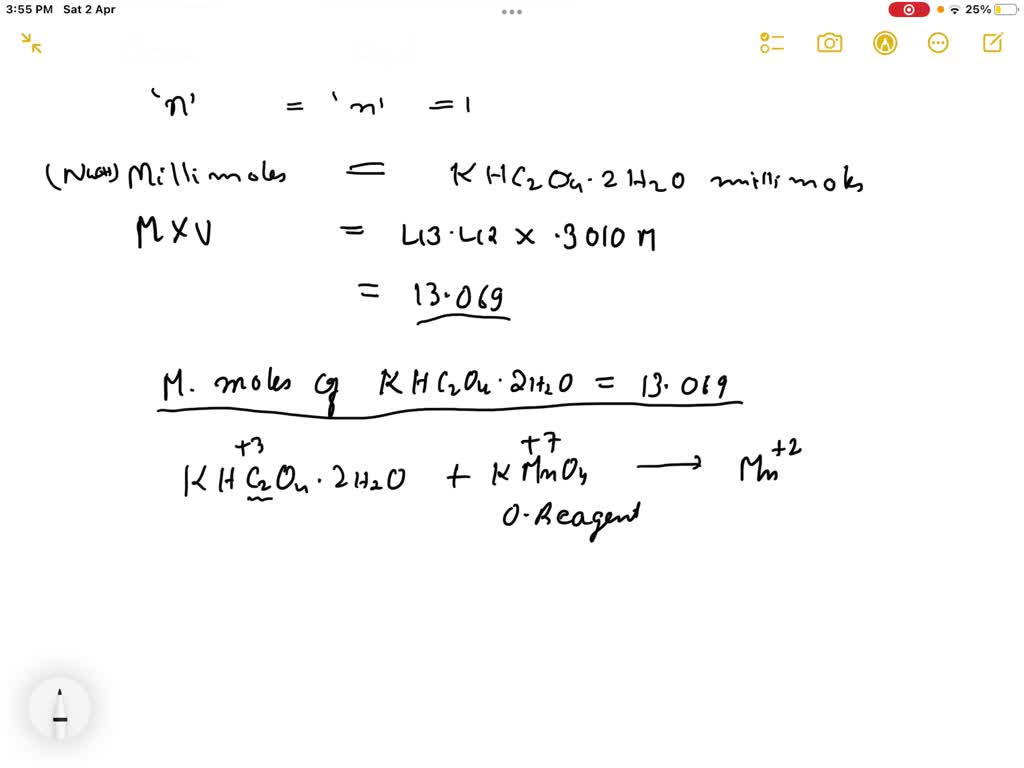 3:55 PM Sat 2 Apr 25%
'n' = 'n' = 1
(NaOH) Millimoles = KHC2O4·2H2O millimoles
M×V = 43.42 × .3010 M
= 13.069
M. moles of KHC2O4·2H2O = 13.069
+3 +7 +2
KHC2O4·2H2O + KMnO4 → Mn
O.Reagent